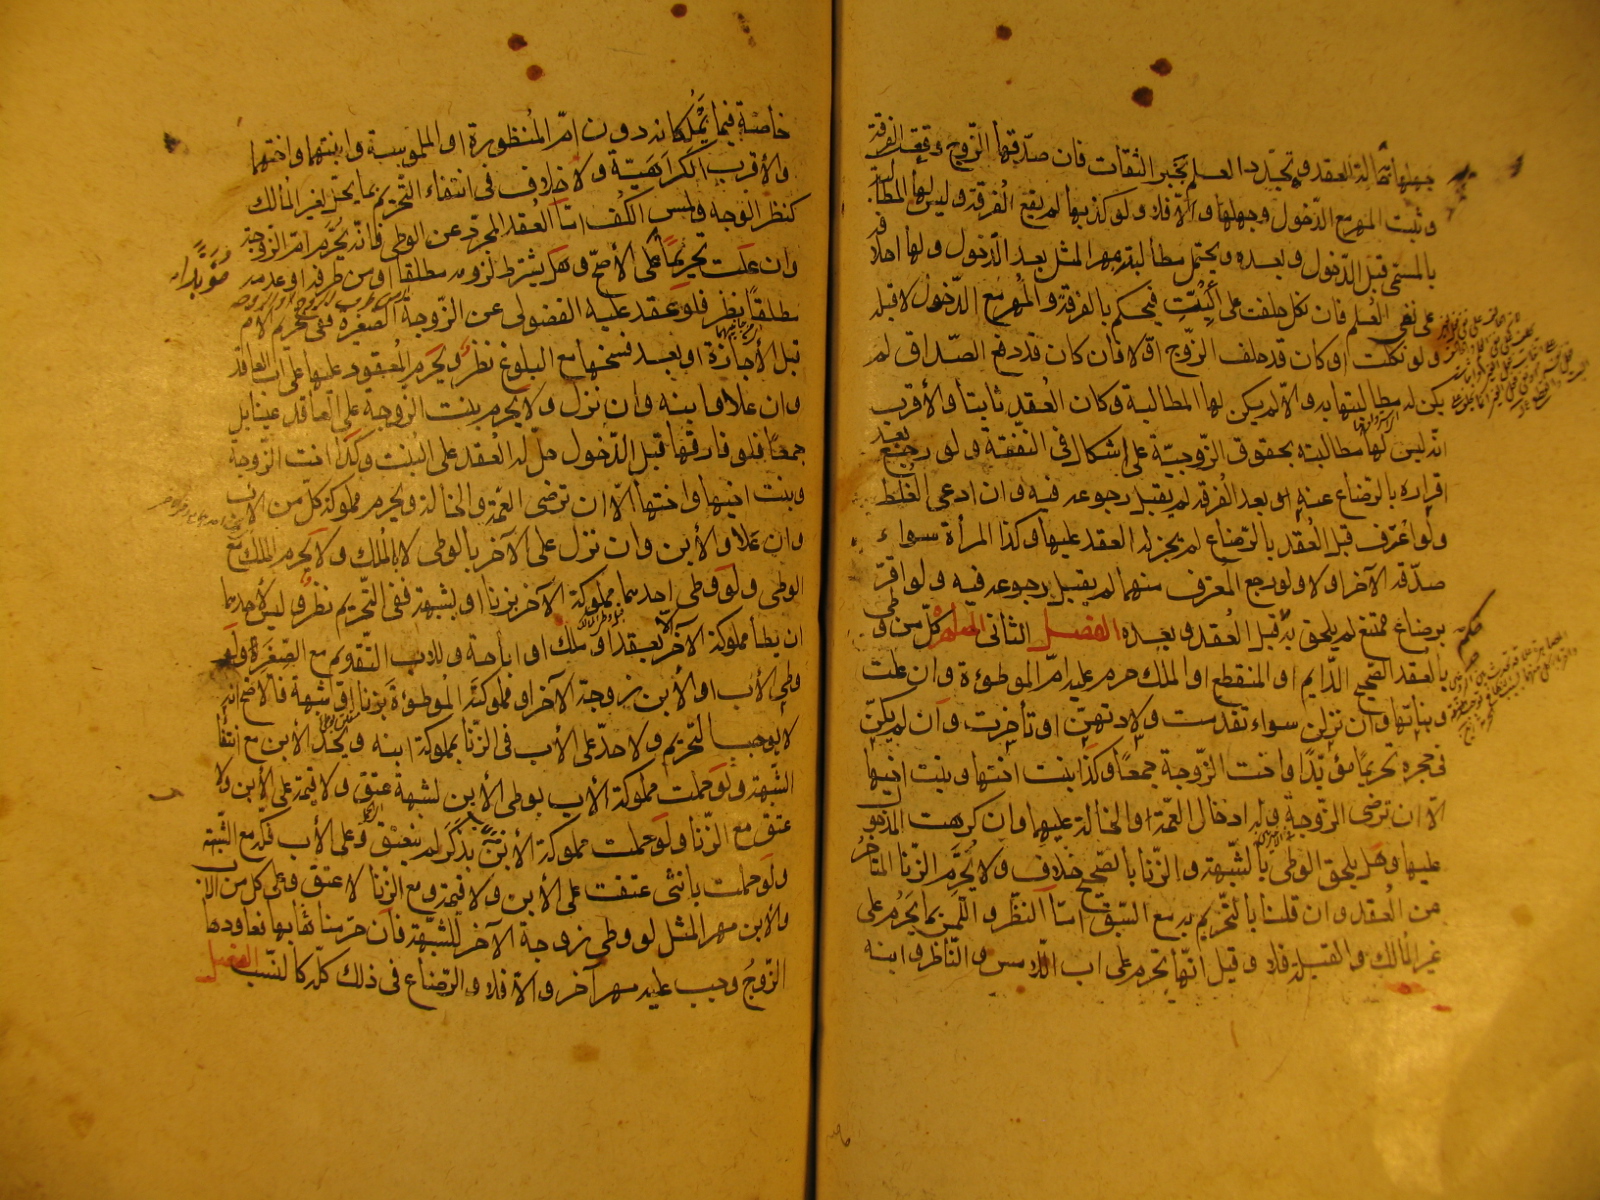 جهلها حالة العقد وتجدد العلم بخبر الثقات فان صدقها الزوج وقعت الفرقة
وثبت المهر مع الدخول وجهلها والا فلا ولو كذبها لم يقع الفرقة وليس لها المطالبة
بالمسمى قبل الدخول وبعده ويحتمل مطالبته بمهر المثل بعد الدخول ولها احلافه
على نفي العلم فان نكل حلفت على البت فيحكم بالفرقة والمهر مع الدخول لا قبله
ولو نكلت او كان قد حلف الزوج اولا فان كان قد دفع الصداق لم
يكن له مطالبتها به والا لم يكن لها المطالبة وكان العقد ثابتا والأقرب
انه ليس لها مطالبته بحقوق الزوجية على اشكال في النفقة ولو رجع بعد
اقراره بالرضاع عنه او بعد الفرقة لم يقبل رجوعه فيه وان ادعى الغلط
ولو اعترف قبل العقد بالرضاع لم يجز له العقد عليها وكذا المرأة سواء
صدقه الآخر او لا ولو رجع المعترف منهما لم يقبل رجوعه فيه ولو اقر
برضاع ممتنع لم يلحق به قبل العقد وبعده الفصل الثاني المصاهرة كل من وطئ
بالعقد الصحيح الدايم او المنقطع او الملك حرم عليه ام الموطوءة وان علت
وبناتها وان نزلن سواء تقدمت ولادتهن او تأخرت وان لم يكن
في حجره تحريما مؤبدا واخت الزوجة جمعا وكذا بنت اختها وبنت اخيها
الا ان ترضى الزوجة وله ادخال العمة او الخالة عليهما وان كرهت المدخول
عليها وهل يلحق الوطي بالشبهة والزنا بالصحيح خلاف ولا يحرم الزنا المتأخر
عن العقد وان قلنا بالتحريم به مع السبق اما النظر واللمس بما يحرم على
غير المالك والقبلة فلا وقيل انها تحرم على اب اللامس والناظر وابنه
خاصة فيما يملكانه دون ام المنظورة او الملموسة وابنتها واختها
والأقرب الكراهية ولا خلاف في انتفاء التحريم بما يحل لغير المالك
كنظر الوجه ولمس الكف اما العقد المجرد عن الوطي فانه يحرم ام الزوجة
وان علت تحريما على الأصح وهل يشترط لزومه مطلقا او من طرفه او عدمه
مؤبدا
مطلقا نظر فلو عقد عليه الفضولي عن الزوجة الصغيرة ففي تحريم الام
قبل الأجازة او بعد فسخها مع البلوغ نظر ويحرم المعقود عليها على اب العاقد
وان علا وابنه وان نزل ولا يحرم بنت الزوجة على العاقد عينا بل
جمعا فلو فارقها قبل الدخول حل له العقد على البنت وكذا اخت الزوجة
وبنت اخيها واختها الا ان ترضى العمة والخالة ويحرم مملوكة كل من الاب
وان علا والأبن وان نزل على الآخر بالوطي لا بالملك ولا يحرم الملك مع
الوطي ولو وطي احدهما مملوكة الآخر بزنا او بشبهة ففي التحريم نظر وليس لأحدهما
ان يطأ مملوكة الآخر الا بعقد او ملك او اباحة وللاب التقويم مع الصغر ولو
وطي الأب او الأبن زوجة الآخر او مملوكته الموطوءة بزنا او شبهة فالأصح انه
لا يوجب التحريم ولا حد على الأب في الزنا بمملوكة ابنه ويحد الأبن مع انتفاء
الشبهة ولو حملت مملوكة الأب بوطي الأبن لشبهة عتق ولا قيمة على الأبن ولا
عتق مع الزنا ولو حملت مملوكة الأبن بذكر لم ينعتق وعلى الأب فكه مع الشبهة
ولو حملت بانثى عتقت على الأبن ولا قيمة ومع الزنا لا عتق وعلى كل من الاب
والأبن مهر المثل لو وطي زوجة الآخر للشبهة فان حرمنا بها فعاودها
الزوج وجب عليه مهر آخر والا فلا والرضاع في ذلك كله كالنسب الفصل